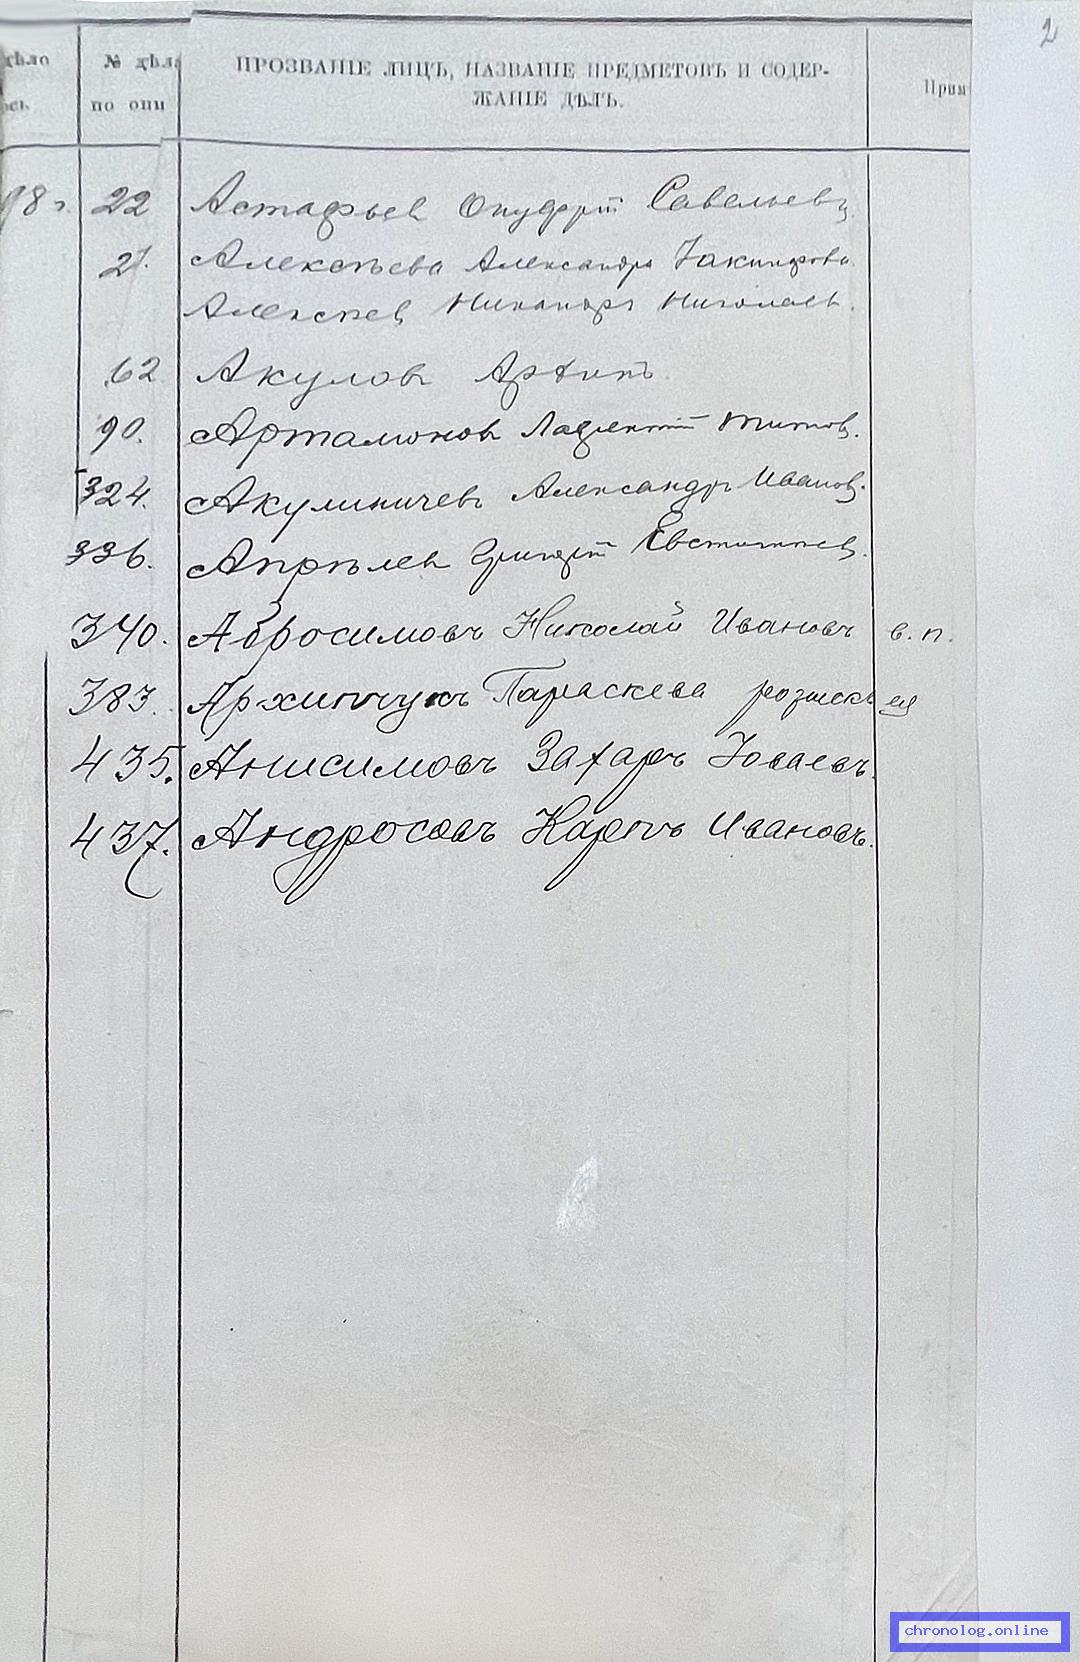 2
дѣло № дѣла ПРОЗВАНІЕ ЛИЦЪ, НАЗВАНІЕ ПРЕДМЕТОВЪ И СОДЕР-
по опи ЖАНІЕ ДѢЛЪ. Прим
98 г. 22 Астафьев Онуфрій Савельев
27. Алексѣева Александра Іакинфова
Алексѣев Никандръ Николаев.
62 Акулов Архипъ
90. Артамонов Лаврентій Титов.
324. Акулиничевъ Александръ Иванов.
336. Апрѣлев Григорій Евстигнеев.
340. Абросимовъ Николай Ивановъ в. п.
383. Архипчукъ Параскева розыскъ ея
435. Анисимовъ Захаръ Іовлевъ.
437. Андросовъ Карпъ Ивановъ.
chronolog.online